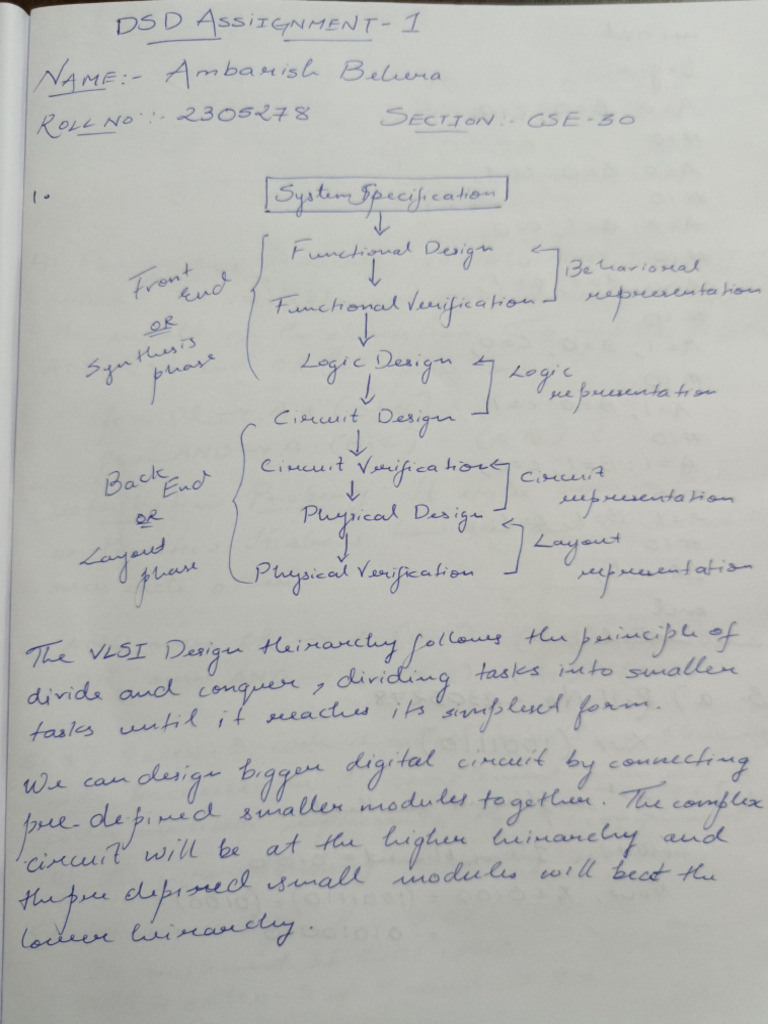 DSD ASSIIGNMENT - 1
NAME:- Ambarish Behera
ROLL NO:- 2305278 SECTION:- CSE-30
1.
System Specification
Functional Design
Functional Verification
Logic Design
Circuit Design
Circuit Verification
Physical Design
Physical Verification
Front End
OR
Synthesis phase
Back End
OR
Layout phase
Behavioral representation
Logic representation
Circuit representation
Layout representation
The VLSI Design Heirarchy follows the principle of
divide and conquer, dividing tasks into smaller
tasks until it reaches its simplest form.
We can design bigger digital circuit by connecting
pre-defined smaller modules together. The complex
circuit will be at the higher heirarchy and
the pre defined small modules will be at the
lower heirarchy.